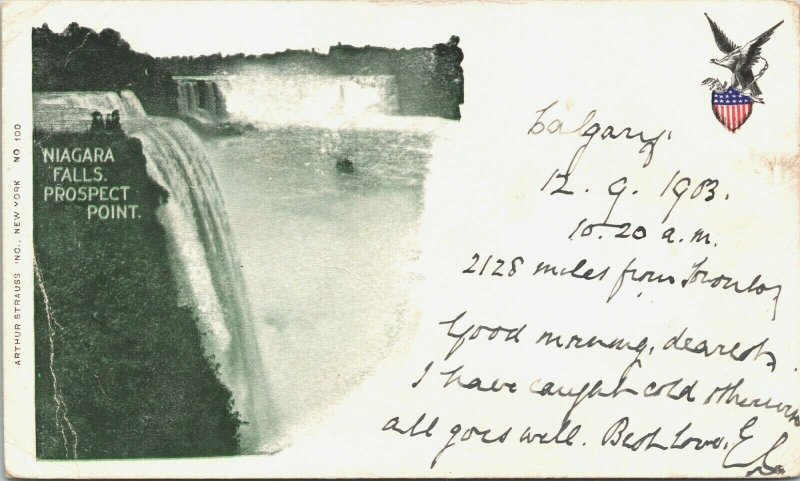 ARTHUR STRAUSS INC., NEW YORK NO 100
NIAGARA
FALLS.
PROSPECT
POINT.
Calgary
12. 9. 1903.
10.20 a.m.
2128 miles from Toronto,
Good morning, dearest,
I have caught cold otherwise
all goes well. Best Love,